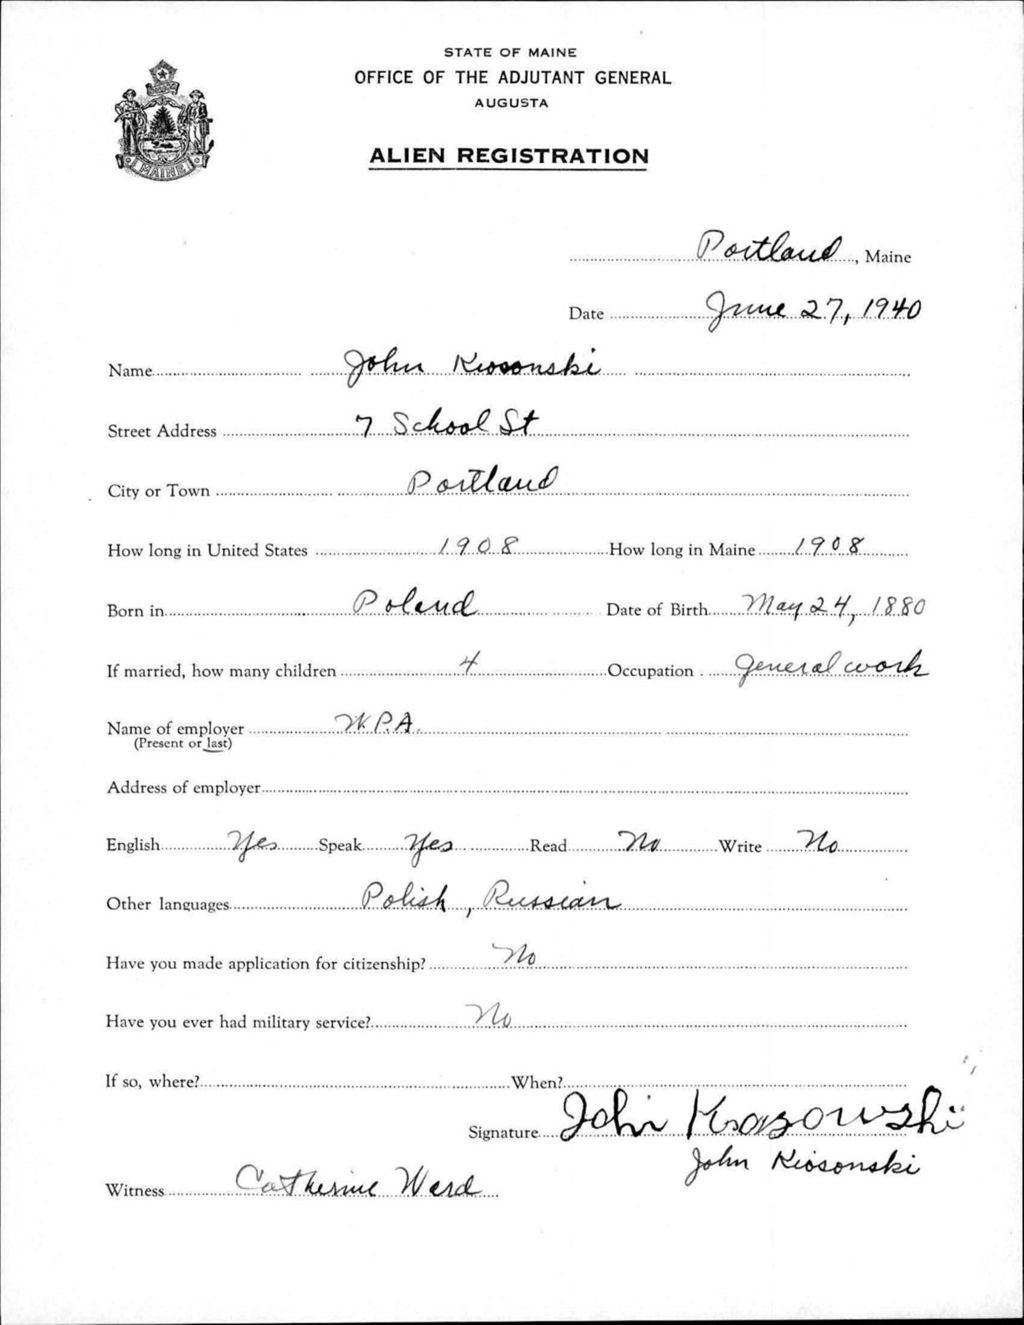 STATE OF MAINE
OFFICE OF THE ADJUTANT GENERAL
AUGUSTA
ALIEN REGISTRATION
MAINE
Portland, Maine
Date June 27, 1940
Name John Kiosonski
Street Address 7 School St
City or Town Portland
How long in United States 1908 How long in Maine 1908
Born in Poland Date of Birth May 24, 1880
If married, how many children 4 Occupation general work
Name of employer W.P.A.
(Present or last)
Address of employer
English Yes Speak Yes Read No Write No
Other languages Polish, Russian
Have you made application for citizenship? No
Have you ever had military service? No
If so, where? When?
Signature John Krasowski
John Kiosonski
Witness Catherine Ward